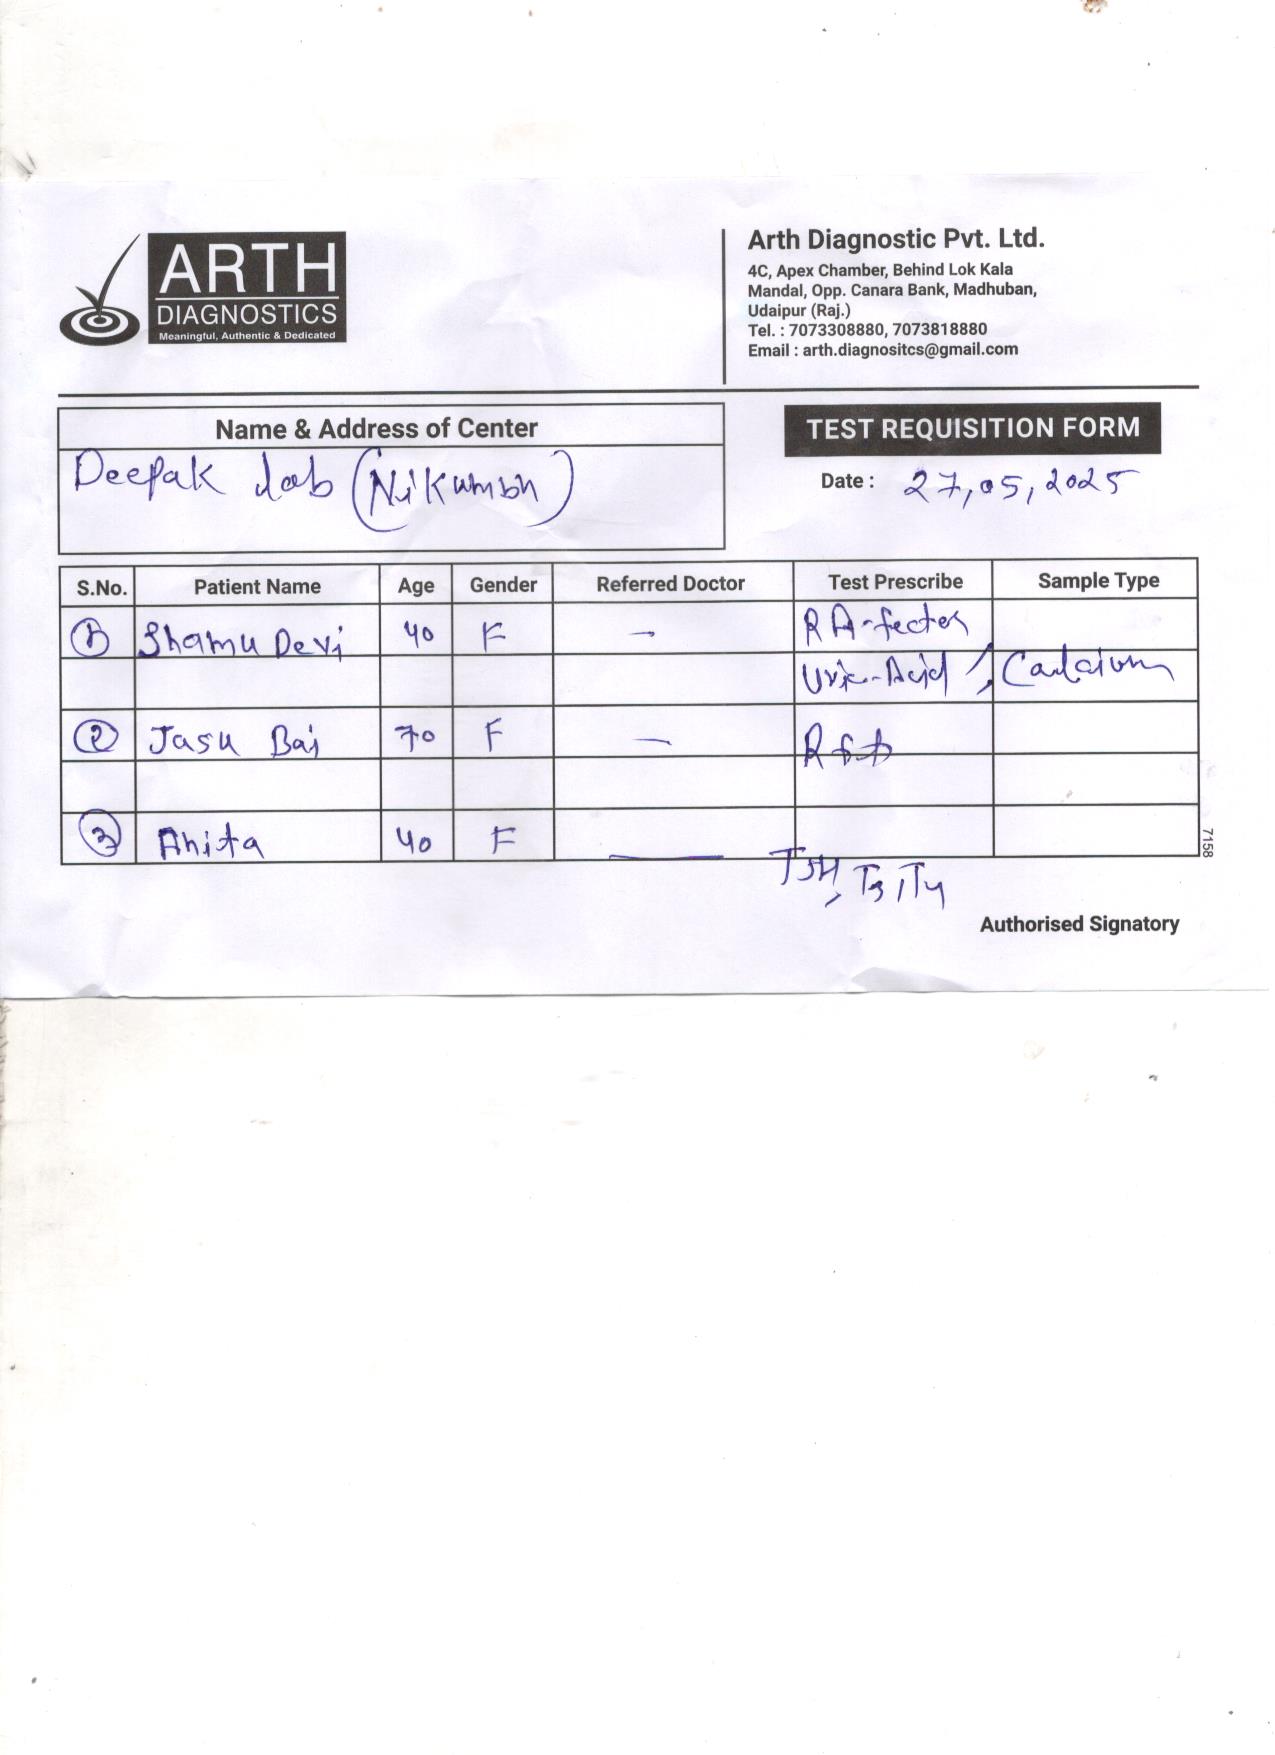 ARTH
DIAGNOSTICS
Meaningful, Authentic & Dedicated
Arth Diagnostic Pvt. Ltd.
4C, Apex Chamber, Behind Lok Kala
Mandal, Opp. Canara Bank, Madhuban,
Udaipur (Raj.)
Tel. : 7073308880, 7073818880
Email : arth.diagnositcs@gmail.com
Name & Address of Center
Deepak lab (Nikumbh)
TEST REQUISITION FORM
Date : 27,05,2025
S.No. Patient Name Age Gender Referred Doctor Test Prescribe Sample Type
1 Shamu Devi 40 F - RA-fector
Uric-Acid, Calcium
2 Jasu Bai 70 F -
3 Anita 40 F -
TSH, T3, T4
7158
Authorised Signatory